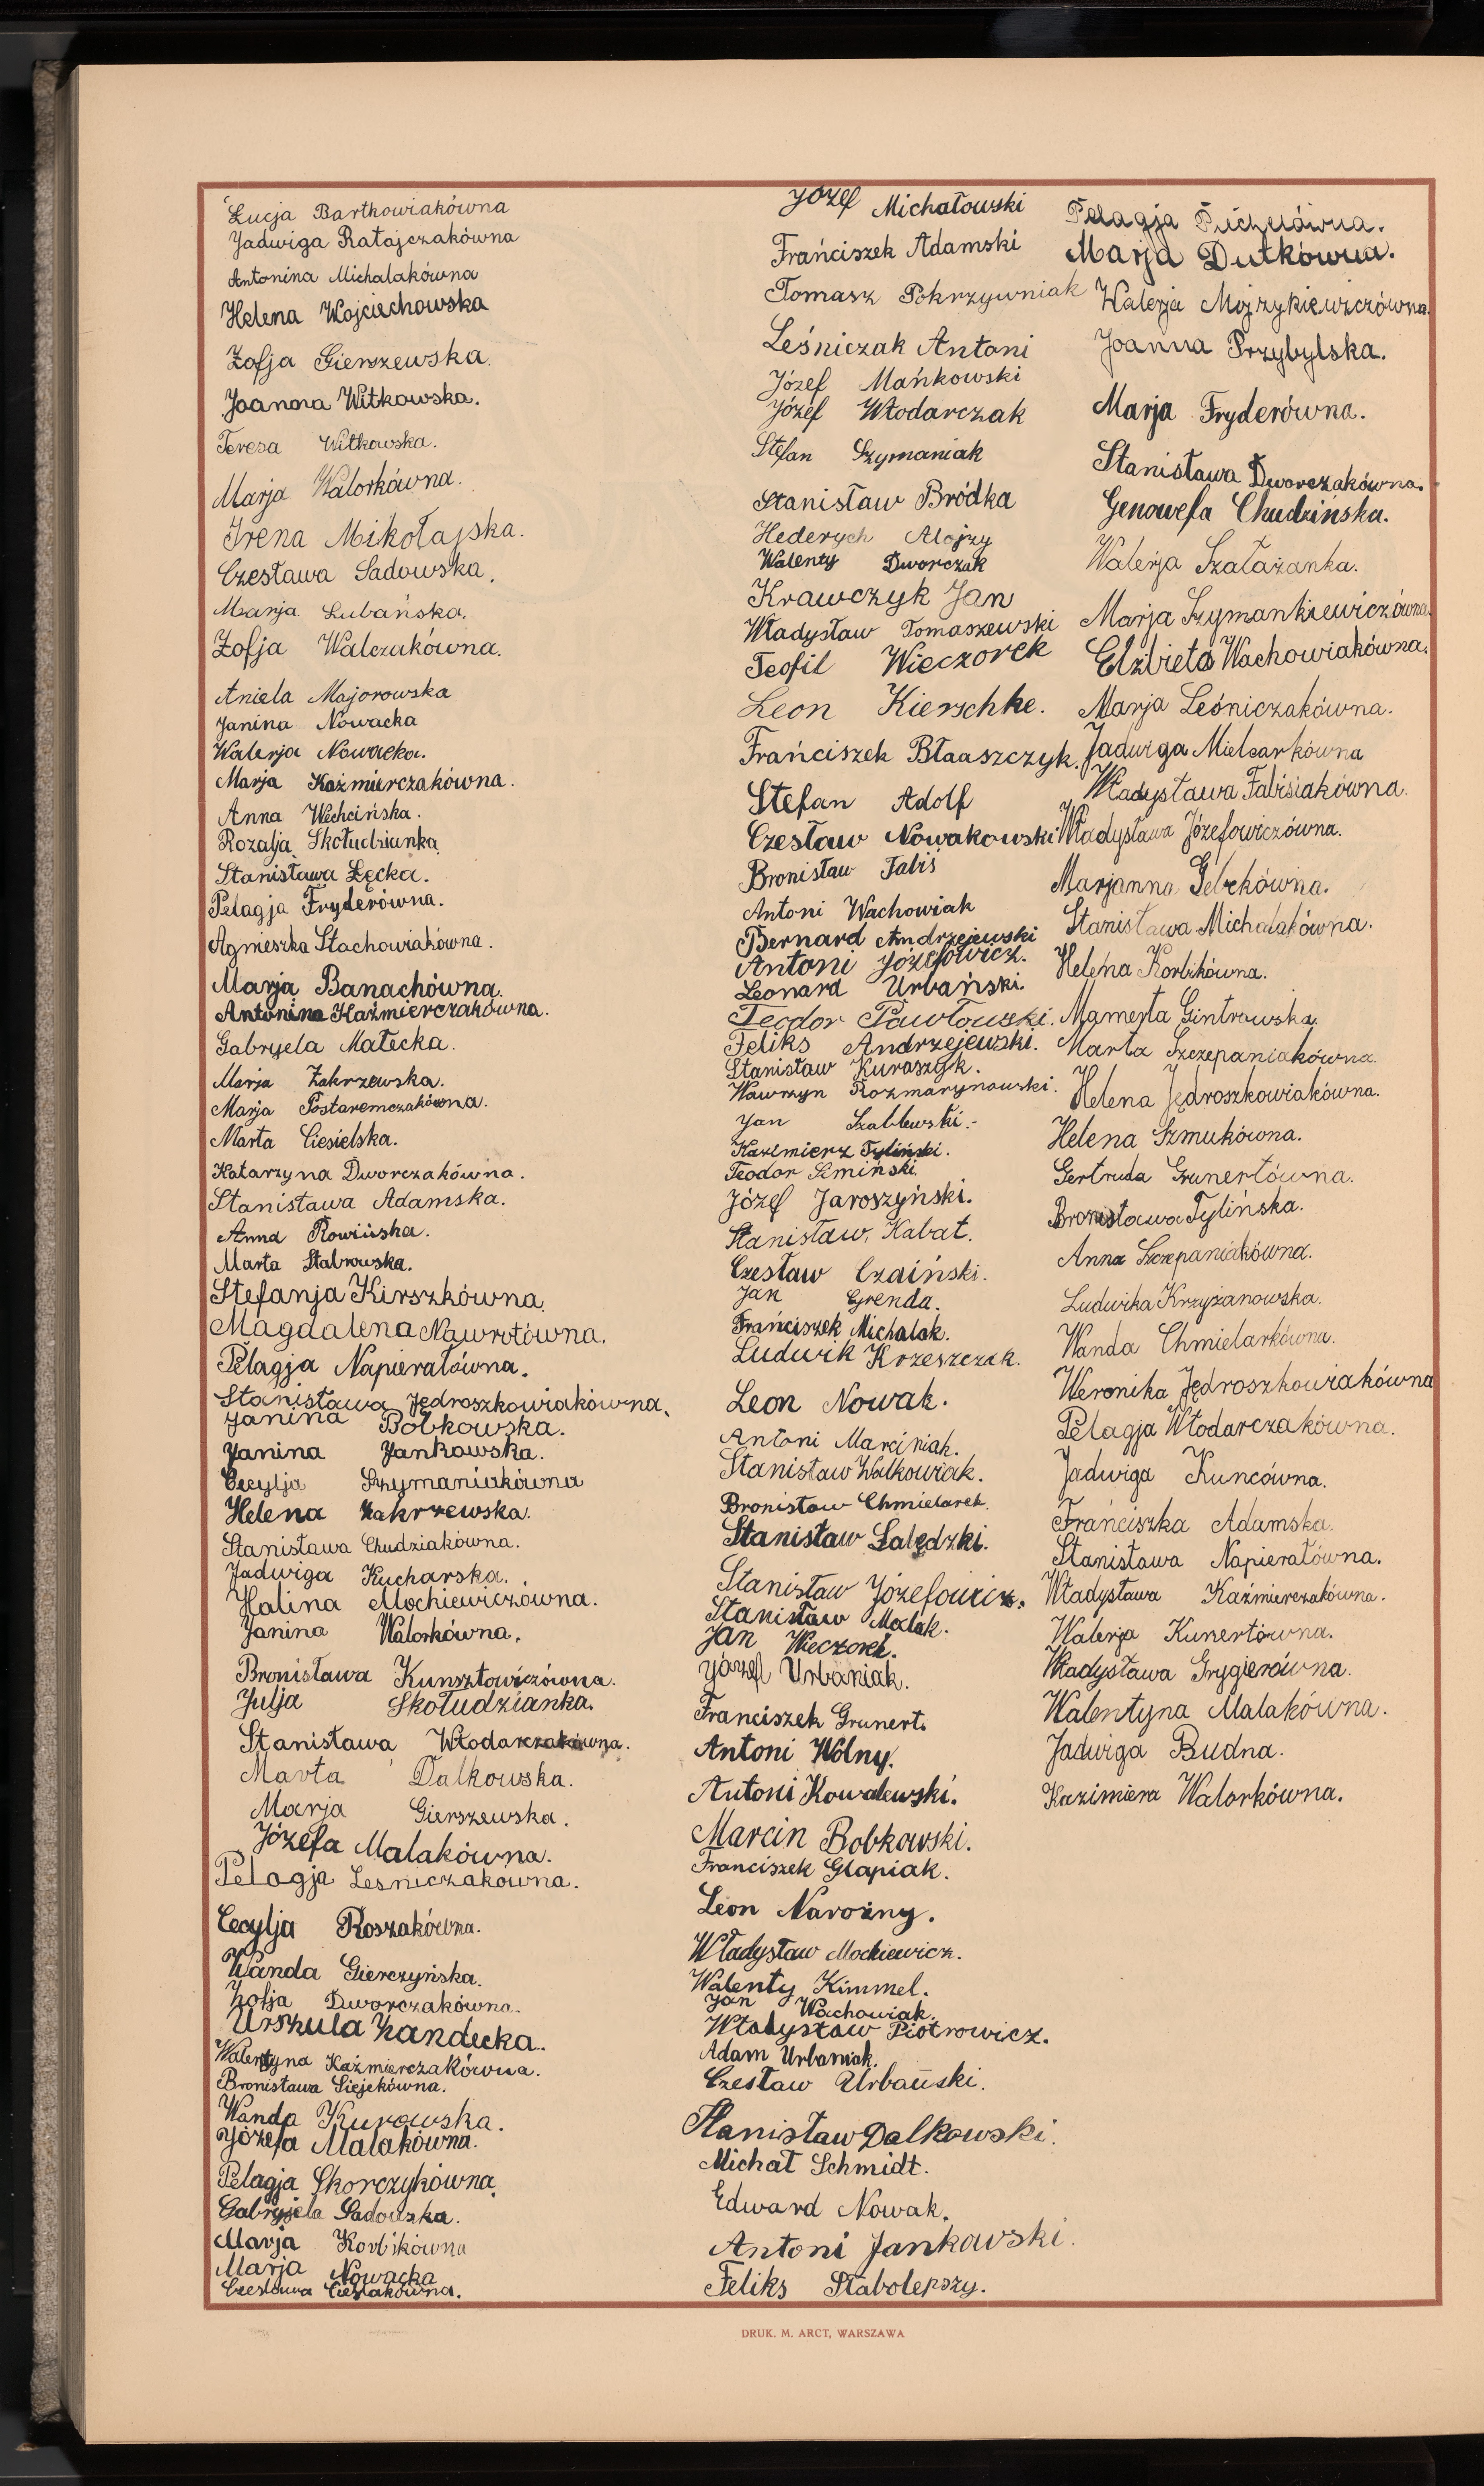 Łucja Bartkowiakówna
Jadwiga Ratajczakówna
Antonina Michalakówna
Helena Wojciechowska
Zofja Gierszewska.
Joanna Witkowska.
Teresa Witkowska.
Marja Walorkówna.
Irena Mikołajska.
Czesława Sadowska.
Marja Lubańska.
Zofja Walczakówna.
Aniela Majorowska
Janina Nowacka
Walerja Nowacka.
Marja Kaźmierczakówna.
Anna Wechcińska.
Rozalja Skołudzianka
Stanisława Łęcka.
Pelagja Fryderówna.
Agnieszka Stachowiakówna.
Marja Banachówna.
Antonina Kaźmierczakówna.
Gabryela Małecka.
Marja Zakrzewska.
Marja Postaremczakówna.
Marta Ciesielska.
Katarzyna Dworczakówna.
Stanisława Adamska.
Anna Rowińska.
Marta Stabrowska.
Stefanja Kirszkówna.
Magdalena Nawrotówna.
Pelagja Napierałówna.
Stanisława Jędroszkowiakówna.
Janina Bobkowska.
Janina Jankowska.
Cecylja Szymaniakówna
Helena Zakrzewska.
Stanisława Chudziakówna.
Jadwiga Kucharska.
Halina Mochiewiczówna.
Janina Walorkówna.
Bronisława Kunsztowiczówna.
Julja Skołudzianka.
Stanisława Włodarczakówna.
Marta Dalkowska.
Marja Gierszewska.
Józefa Malakówna.
Pelagja Leśniczakówna.
Cecylja Roszakówna.
Wanda Gierczyńska.
Zofja Dworczakówna.
Urszula Zandecka.
Walentyna Kaźmierczakówna.
Bronisława Siejekówna.
Wanda Kurowska.
Józefa Malakówna.
Pelagja Skorczykówna.
Gabryjela Sadouska.
Marja Korbikówna
Marja Nowacka
Czesława Cieślakówna.
Józef Michałowski
Frańciszek Adamski
Tomasz Pokrzywniak
Leśniczak Antoni
Józef Mańkowski
Józef Włodarczak
Stefan Szymaniak
Stanisław Bródka
Hederych Alojzy
Walenty Dworczak
Krawczyk Jan
Władysław Tomaszewski
Teofil Wieczorek
Leon Kierschke.
Frańciszek Błaaszczyk.
Stefan Adolf
Czesław Nowakowski
Bronisław Fabiś
Antoni Wachowiak
Bernard Andrzejewski
Antoni Józefowicz.
Leonard Urbański.
Teodor Pawłowski.
Feliks Andrzejewski.
Stanisław Kuraszyk.
Wawrzyn Rozmarynowski.
Jan Szablewski.-
Kazimierz Tyliński.
Teodor Simiński
Józef Jaroszyński.
Stanisław Kabat.
Czesław Czaiński.
Jan Grenda.
Frańciszek Michalak.
Ludwik Krzeszczak.
Leon Nowak.
Antoni Marciniak.
Stanisław Walkowiak.
Bronisław Chmielarek.
Stanisław Łabędzki.
Stanisław Józefowicz.
Stanisław Malak.
Jan Wieczorek.
Józef Urbaniak.
Franciszek Grunert.
Antoni Wolny.
Antoni Kowalewski.
Marcin Bobkowski.
Franciszek Glapiak.
Leon Narożny.
Władysław Mochiewicz.
Walenty Kimmel.
Jan Wachowiak.
Władysław Piotrowicz.
Adam Urbaniak.
Czesław Urbański.
Stanisław Dalkowski.
Michał Schmidt.
Edward Nowak.
Antoni Jankowski.
Feliks Słabolepszy.
Pelagja
Marja Dutkówna.
Walerja Mojzykiewiczówna.
Joanna Przybylska.
Marja Fryderówna.
Stanisława Dworczakówna.
Genowefa Chudzińska.
Walerja Szałażanka.
Marja Szymankiewiczówna.
Elżbieta Wachowiakówna.
Marja Leśniczakówna.
Jadwiga Mielcarkówna
Władysława Fabisiakówna.
Władysława Józefowiczówna.
Marjanna
Stanisława Michalakówna.
Helena Korbikówna.
Mamerta Gintrowska.
Marta Szczepaniakówna.
Helena Jędroszkowiakówna.
Helena Szmukówna.
Gertruda Grunertówna.
Bronisława Tylińska.
Anna Szczepaniakówna.
Ludwika Krzyżanowska.
Wanda Chmielarkówna.
Weronika Jędroszkowiakówna
Pelagja Włodarczakówna.
Jadwiga Kuncówna.
Frańciszka Adamska.
Stanisława Napierałówna.
Władysława Kaźmierczakówna.
Walerja Kunertówna.
Władysława Grygierówna.
Walentyna Malakówna.
Jadwiga Budna.
Kazimiera Walorkówna.
DRUK. M. ARCT, WARSZAWA